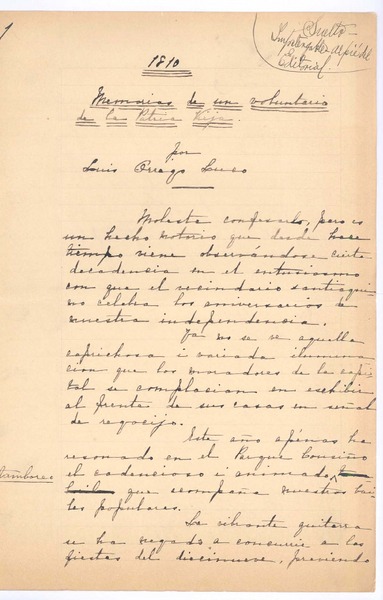 1
Suelto =
Editorial.
1810
Memorias de un voluntario
de la Patria Vieja.
por
Luis Orrego Luco
Molesta confesarlo, pero es
un hecho notorio que desde hace
tiempo viene observándose cierta
decadencia en el entusiasmo
con que el vecindario santiagui
no celebra los aniversarios de
nuestra independencia.
Ya no se ve aquella
caprichosa i variada ilumina
cion que los moradores de la capi
tal se complacian en exhibir
al frente de sus casas en señal
de regocijo.
Este año apénas ha
resonado en el Parque Cousiño
el cadencioso i animado
tamboreo
que acompaña nuestros bai
les populares.
La vibrante guitarra
se ha negado a concurrir a las
fiestas del diecinueve, previendo